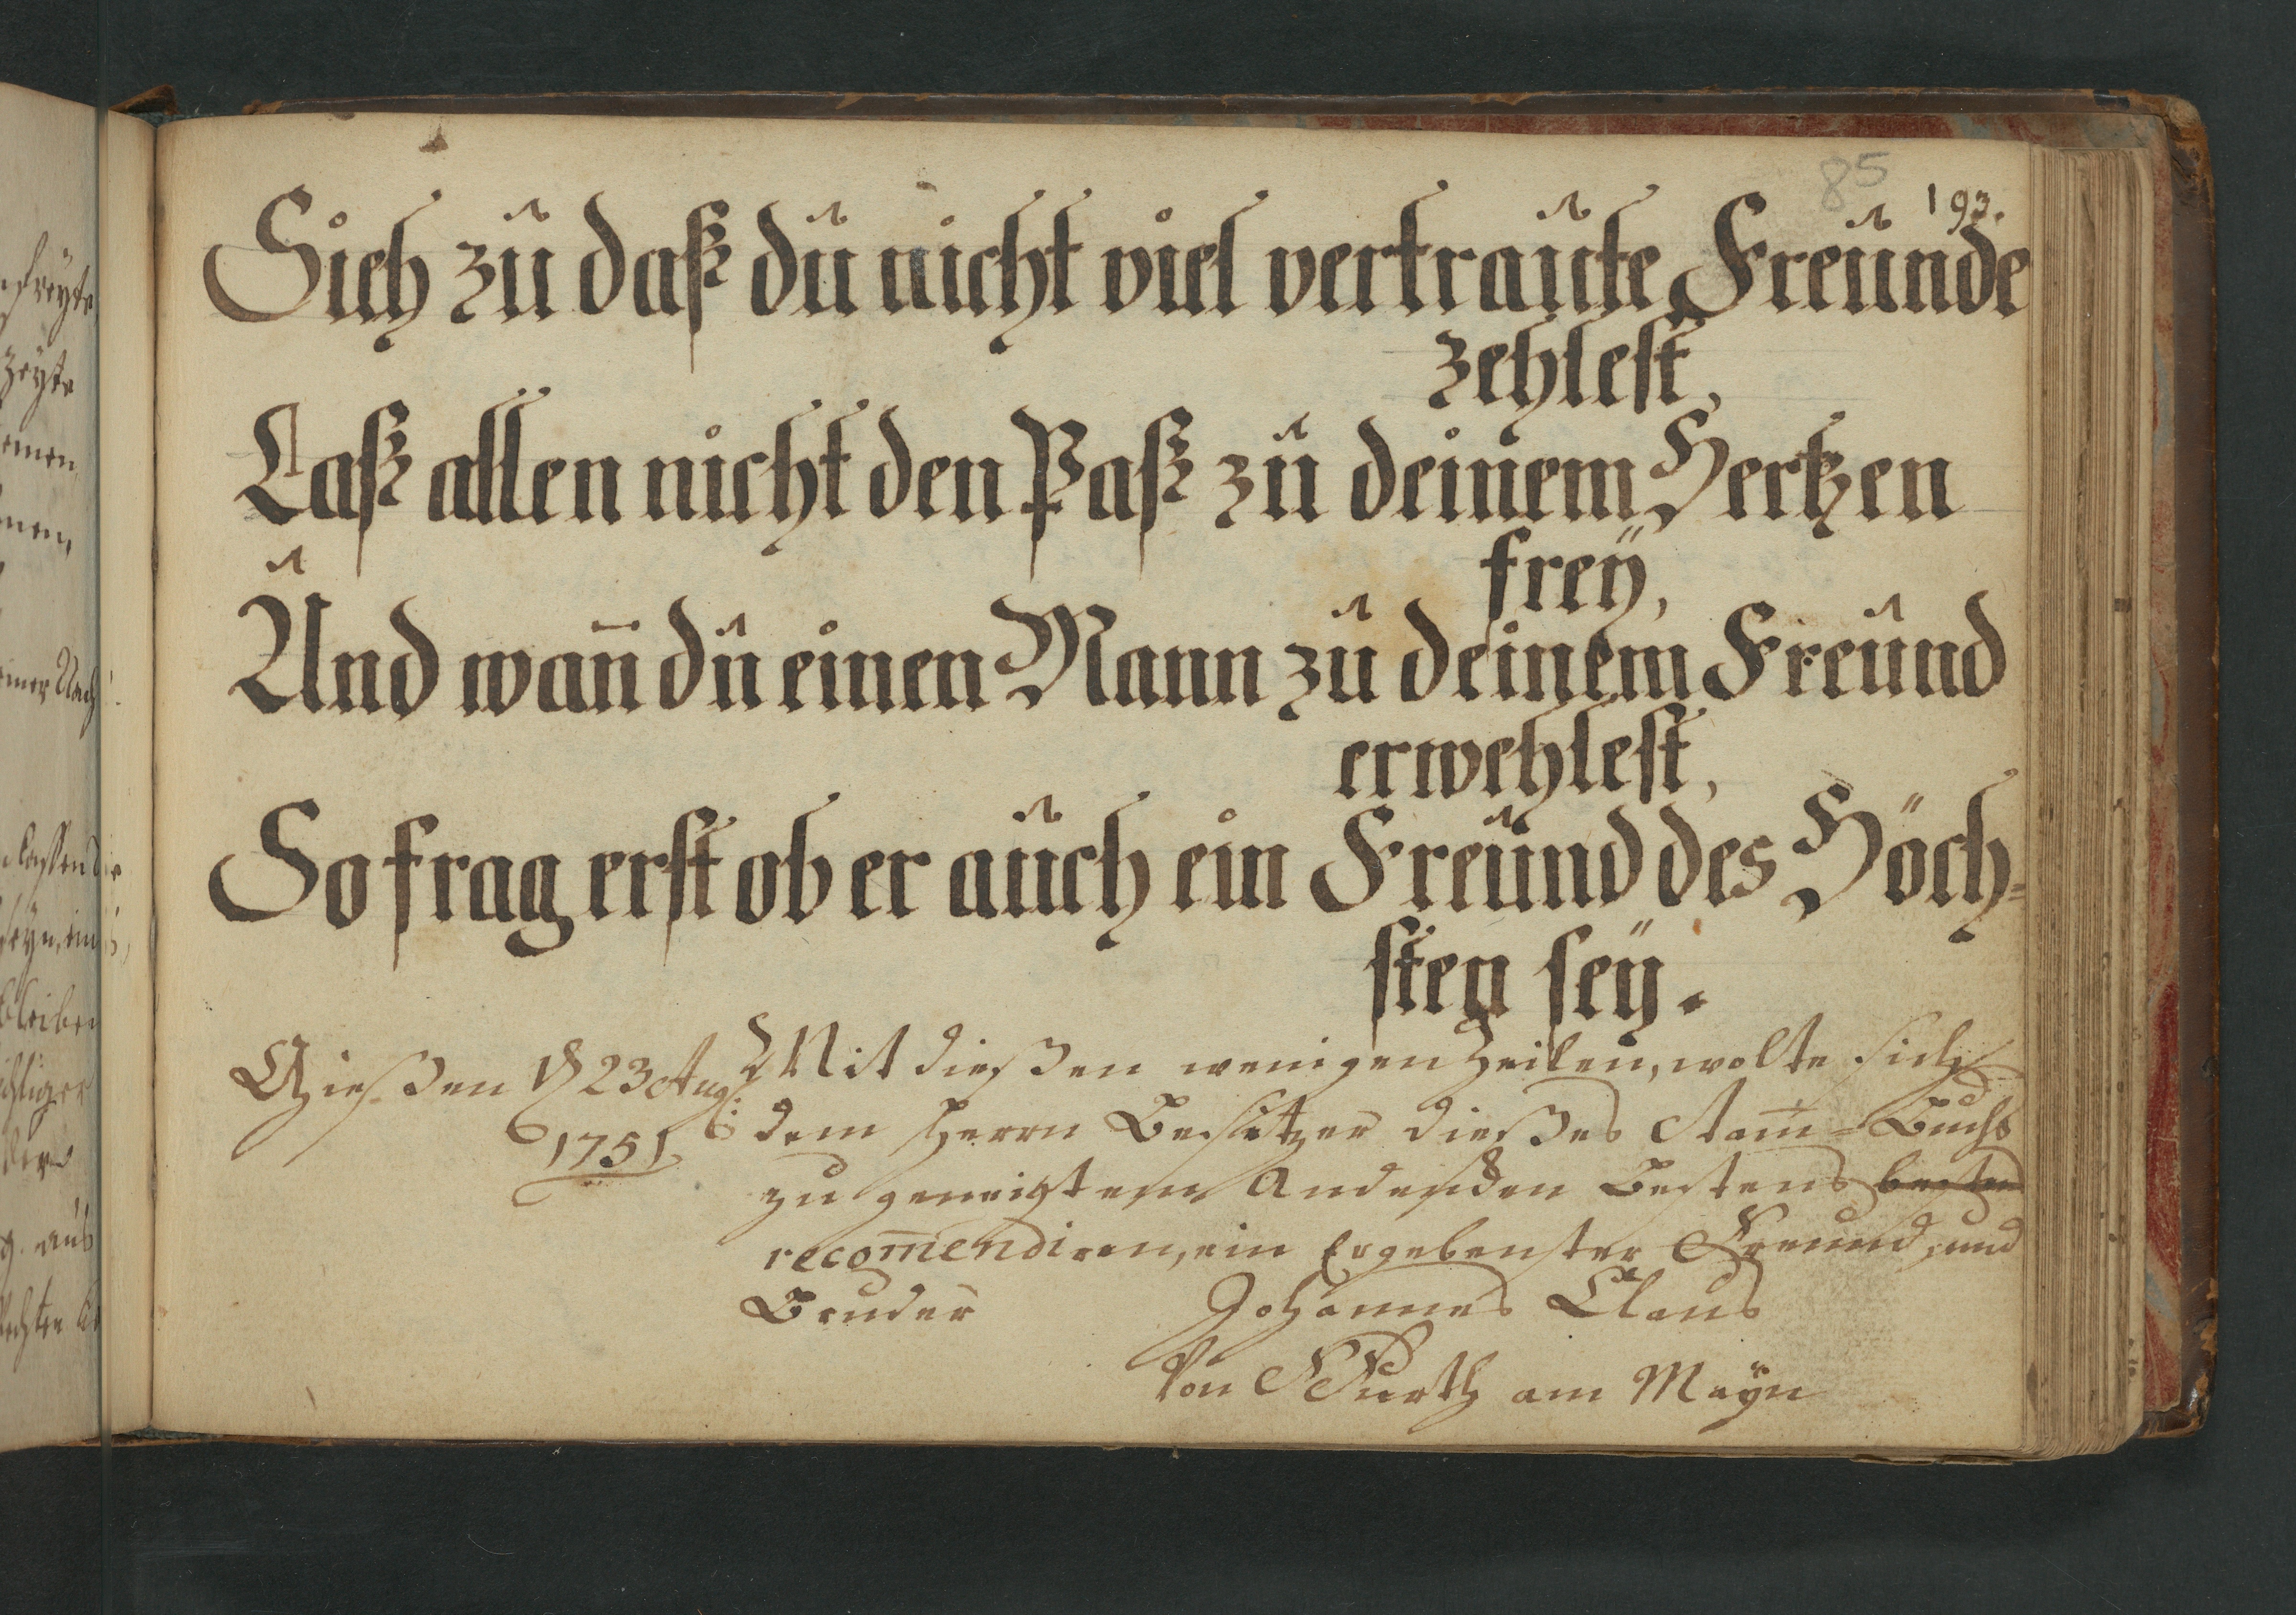 85
193.
Sieh zu daß du nicht viel vertraute Freunde
zehlest,
Laß allen nicht den Paß zu deinem Hertzen
freÿ,
Und wan̄ du einen Mann zu deinem Freund
erwehlest,
So frag erst ob er auch ein Freund des Höch=
sten seÿ.
Gießen d 23 Aug:
1751
Mit dießen wenigen Zeilen, wolte sich
dem Herrn Besitzer dießes Stam̄=Buchs
zu geneigtem Andencken Bestens besten
recom̄endiren, ein Ergebenster Freund, und
Bruder
Johannes Claus
Von Furth am Maÿn